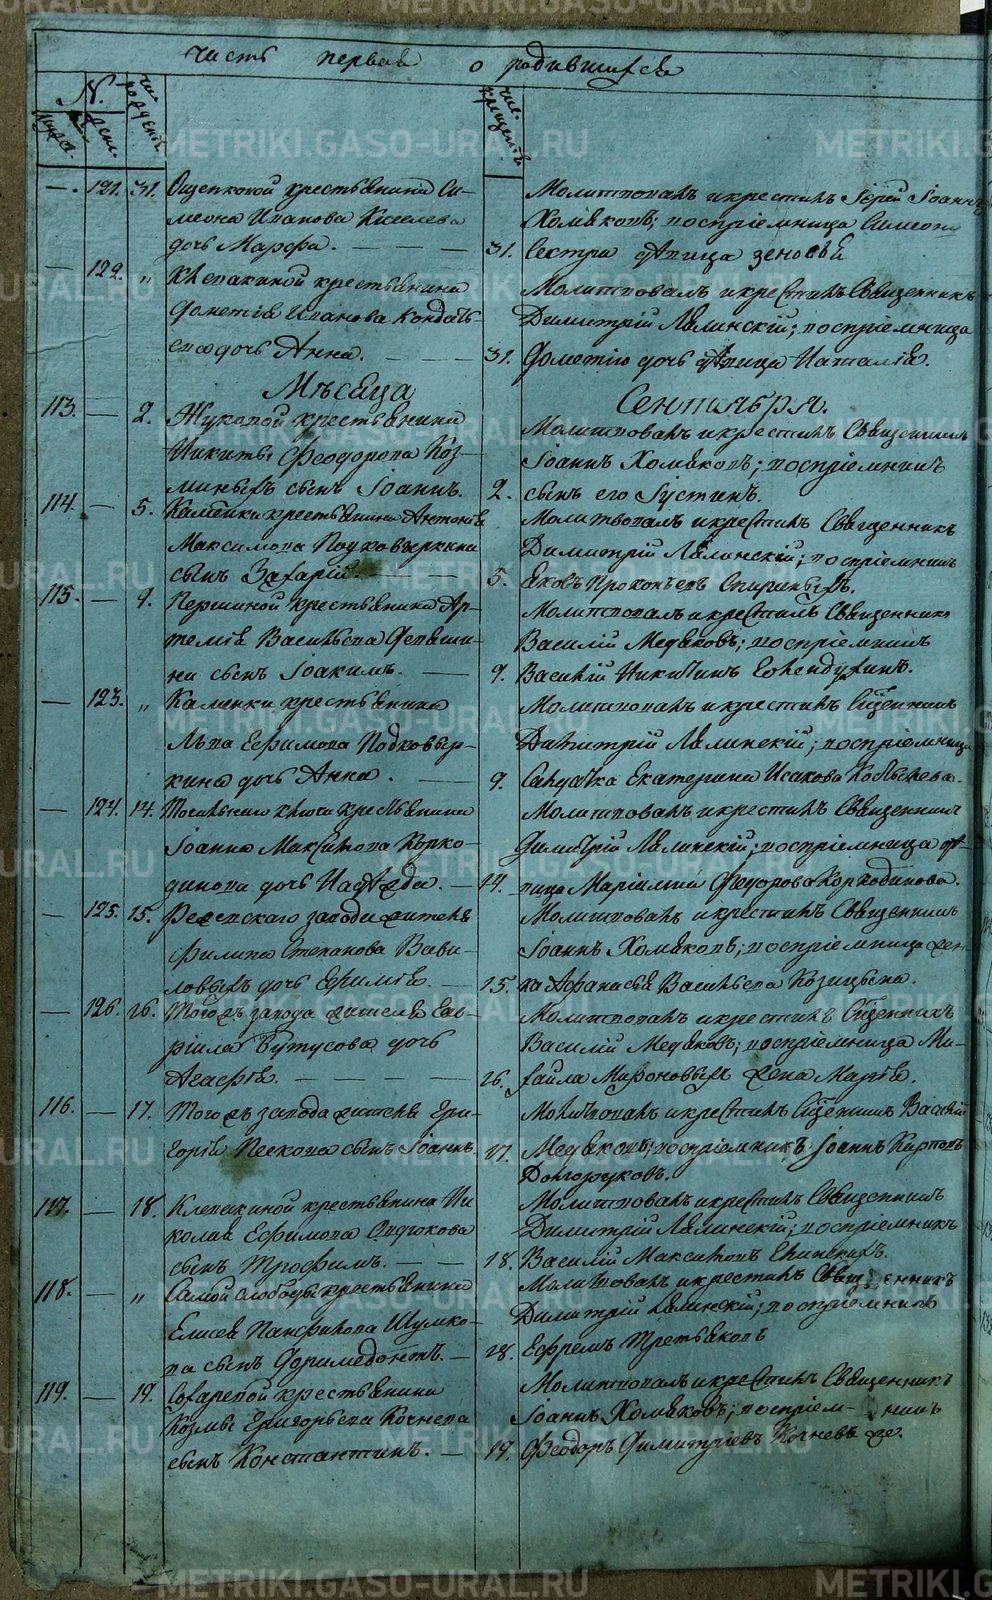 часть первая о родившихся
N.
числ. рожденiя
числ. крещенiя
мужс. женс.
121. 31. Ощепковой крестьянина Си-
меона Иванова Киселева
дочь Марѳа.
Молитвовалъ и крестилъ Iерей Iоаннъ
Хомяковъ; воспрiемница Симеона
31. сестра дѣвица Зеновѣя
122. „ Клепакиной крестьянина
Дометiя Иванова Кондать-
ева дочь Анна.
Молитвовалъ и крестилъ Священникъ
Димитрiй Лялинскiй; воспрiемница
31. Дометiю дочь дѣвица Наталiя.
Мѣсяца Сентября.
113. 2. Жуковой крестьянина
Никиты Ѳеодорова Коз-
миныхъ сынъ Iоаннъ.
Молитвовалъ и крестилъ Священникъ
Iоаннъ Хомяковъ; воспрiемникъ
2. сынъ его Iустинъ.
114. 5. Каменки крестьянина Антонiя
Максимова Подковыркина
сынъ Захарiй.
Молитвовалъ и крестилъ Священникъ
Димитрiй Лялинскiй; воспрiемникъ
5. Яковъ Прокопьевъ Спириныхъ.
115. 9. Першиной крестьянина Ар-
темiя Васильева
сынъ Iоакимъ.
Молитвовалъ и крестилъ Священникъ
Василiй Медяковъ; воспрiемникъ
9. Василiй Никитинъ
123. „ Каменки крестьянина
Льва Ефимова Подковыр-
кина дочь Анна.
Молитвовалъ и крестилъ Священникъ
Димитрiй Лялинскiй; воспрiемница
9. Солдатка Екатерина Исакова
124. 14. крестьянина
Iоанна Максимова Корко-
динова дочь Надежда.
Молитвовалъ и крестилъ Священникъ
Димитрiй Лялинскiй; воспрiемница дѣ-
14. вица Марiамна Ѳедорова Коркодинова.
125. 15. Режевскаго завода жителя
Филипа Степанова Вави-
ловыхъ дочь Ефимiя.
Молитвовалъ и крестилъ Священникъ
Iоаннъ Хомяковъ; воспрiемница жен-
15. ка Афанасья Васильева Козицына.
126. 16. Тогожъ завода жителя Гав-
рiила Бутусова дочь
Агафiя.
Молитвовалъ и крестилъ Священникъ
Василiй Медяковъ; воспрiемница Ми-
16. хаила Мироновыхъ жена Марiя.
116. 17. Тогожъ завода жителя Гри-
горiя Пескова сынъ Iоаннъ.
Молитвовалъ и крестилъ Священникъ Василiй
17. Медяковъ; воспрiемникъ Iоаннъ Карповъ
Долгоруковъ.
117. 18. Клепакиной крестьянина Ни-
колая Ефимова
сынъ Трофимъ.
Молитвовалъ и крестилъ Священникъ
Димитрiй Лялинскiй; воспрiемникъ
18. Василiй Максимовъ
118. „ Самой слободы крестьянина
Елисея Панфилова Шумко-
ва сынъ Форимедонтъ.
Молитвовалъ и крестилъ Священникъ
Димитрiй Лялинскiй; воспрiемникъ
18. Ефремъ Третьяковъ
119. 19. Сохаревой крестьянина
Козмы Григорьева Кочнева
сынъ Константинъ.
Молитвовалъ и крестилъ Священникъ
Iоаннъ Хомяковъ; воспрiемникъ
19. Ѳеодоръ Димитрiевъ Кочневъ же.
METRIKI.GASO-URAL.RU